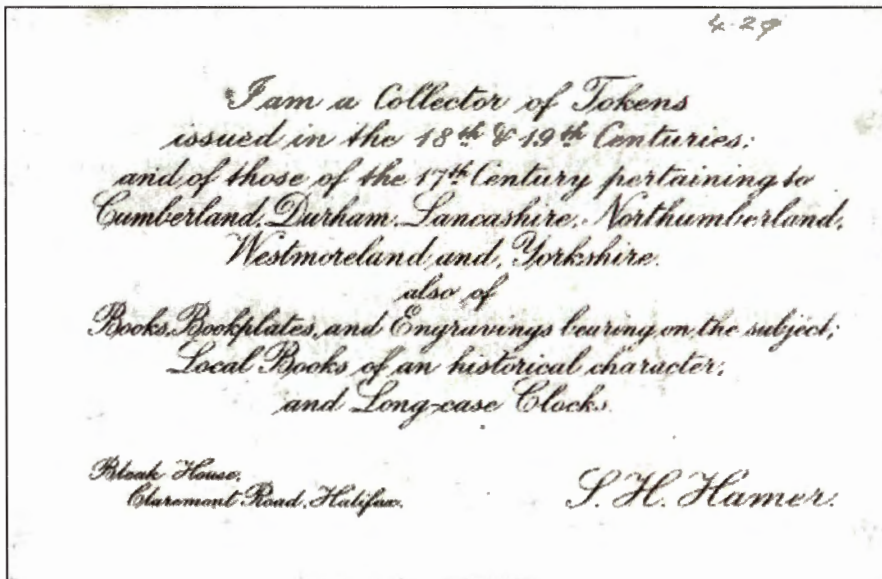 I am a Collector of Tokens
issued in the 18th & 19th Centuries;
and of those of the 17th Century pertaining to
Cumberland, Durham, Lancashire, Northumberland,
Westmoreland and, Yorkshire.
also of
Books, Bookplates, and Engravings bearing on the subject;
Local Books of an historical character;
and Long-case Clocks.
Bleak House,
Claremont Road, Halifax.
S. H. Hamer.